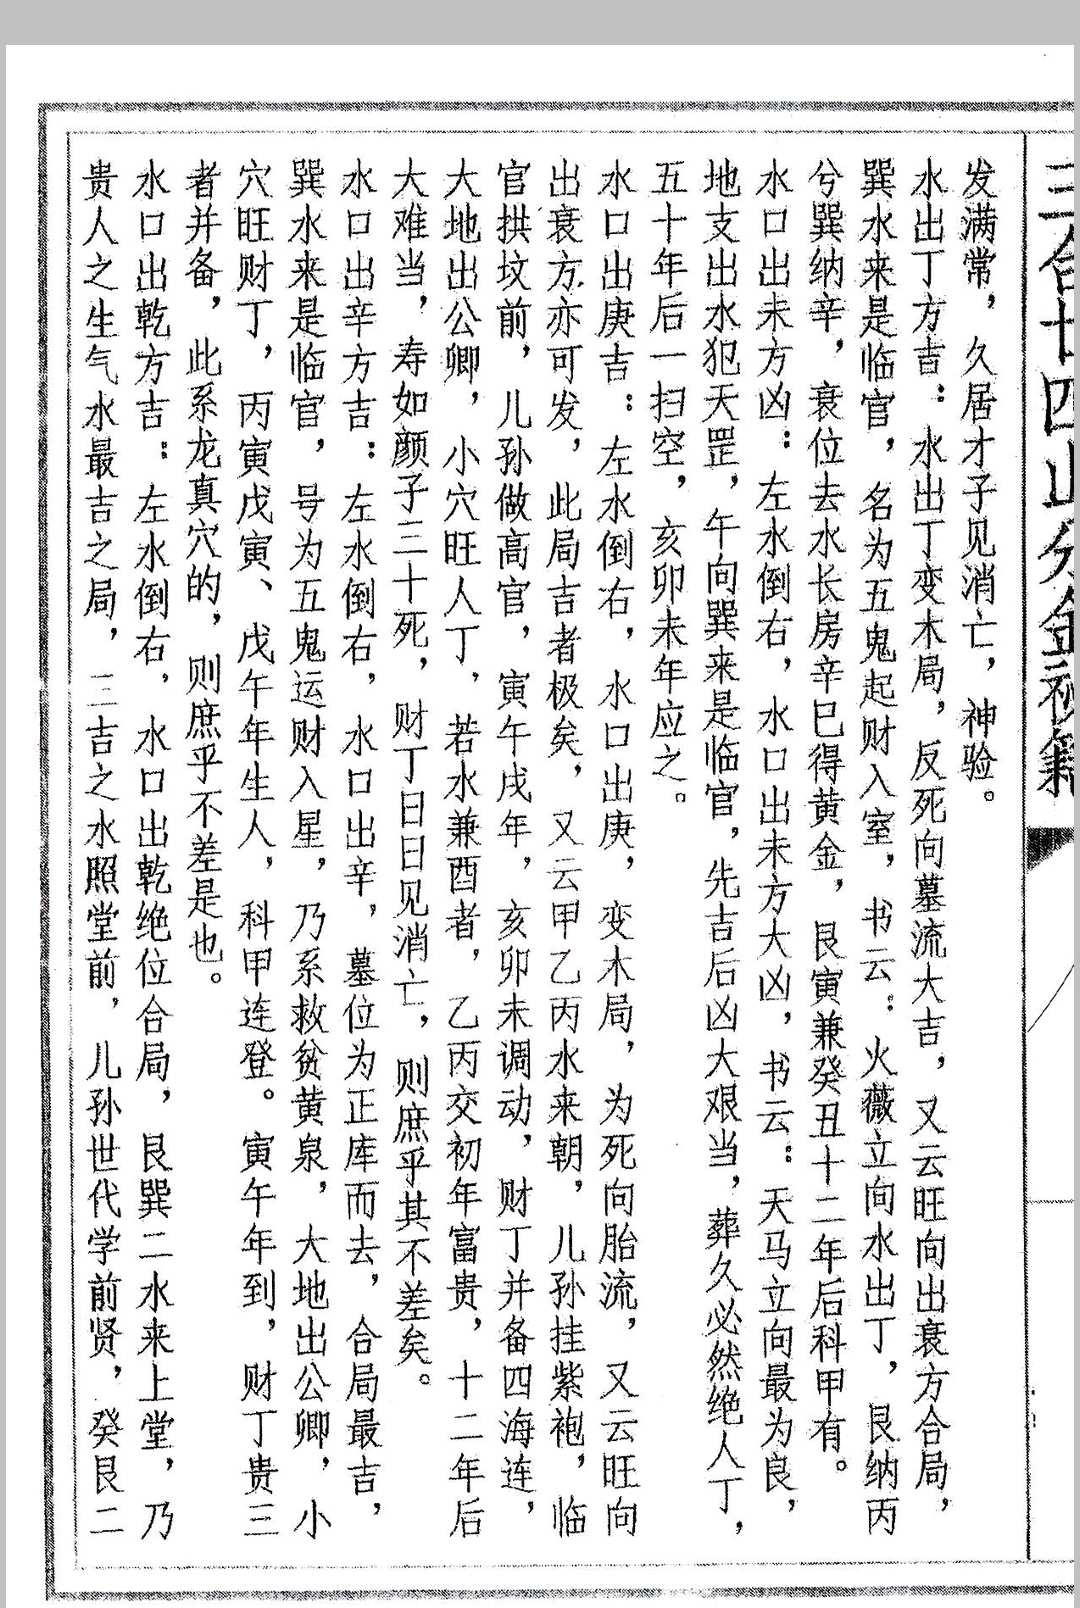 三合廿四山分金秘籍
发满常，久居才子见消亡，神验。
水出丁方吉：水出丁变木局，反死向墓流大吉，又云旺向出衰方合局，
巽水来是临官，名为五鬼起财入室，书云：火薇立向水出丁，艮纳丙
兮巽纳辛，衰位去水长房辛巳得黄金，艮寅兼癸丑十二年后科甲有。
水口出未方凶：左水倒右，水口出未方大凶，书云：天马立向最为良，
地支出水犯天罡，午向巽来是临官，先吉后凶大艰当，葬久必然绝人丁，
五十年后一扫空，亥卯未年应之。
水口出庚吉：左水倒右，水口出庚，变木局，为死向胎流，又云旺向
出衰方亦可发，此局吉者极矣，又云甲乙丙水来朝，儿孙挂紫袍，临
官拱坟前，儿孙做高官，寅午戌年，亥卯未调动，财丁并备四海连，
大地出公卿，小穴旺人丁，若水兼酉者，乙丙交初年富贵，十二年后
大难当，寿如颜子三十死，财丁日日见消亡，则庶乎其不差矣。
水口出辛方吉：左水倒右，水口出辛，墓位为正库而去，合局最吉，
巽水来是临官，号为五鬼运财入星，乃系救贫黄泉，大地出公卿，小
穴旺财丁，丙寅戊寅、戊午年生人，科甲连登。寅午年到，财丁贵三
者并备，此系龙真穴的，则庶乎不差是也。
水口出乾方吉：左水倒右，水口出乾绝位合局，艮巽二水来上堂，乃
贵人之生气水最吉之局，三吉之水照堂前，儿孙世代学前贤，癸艮二